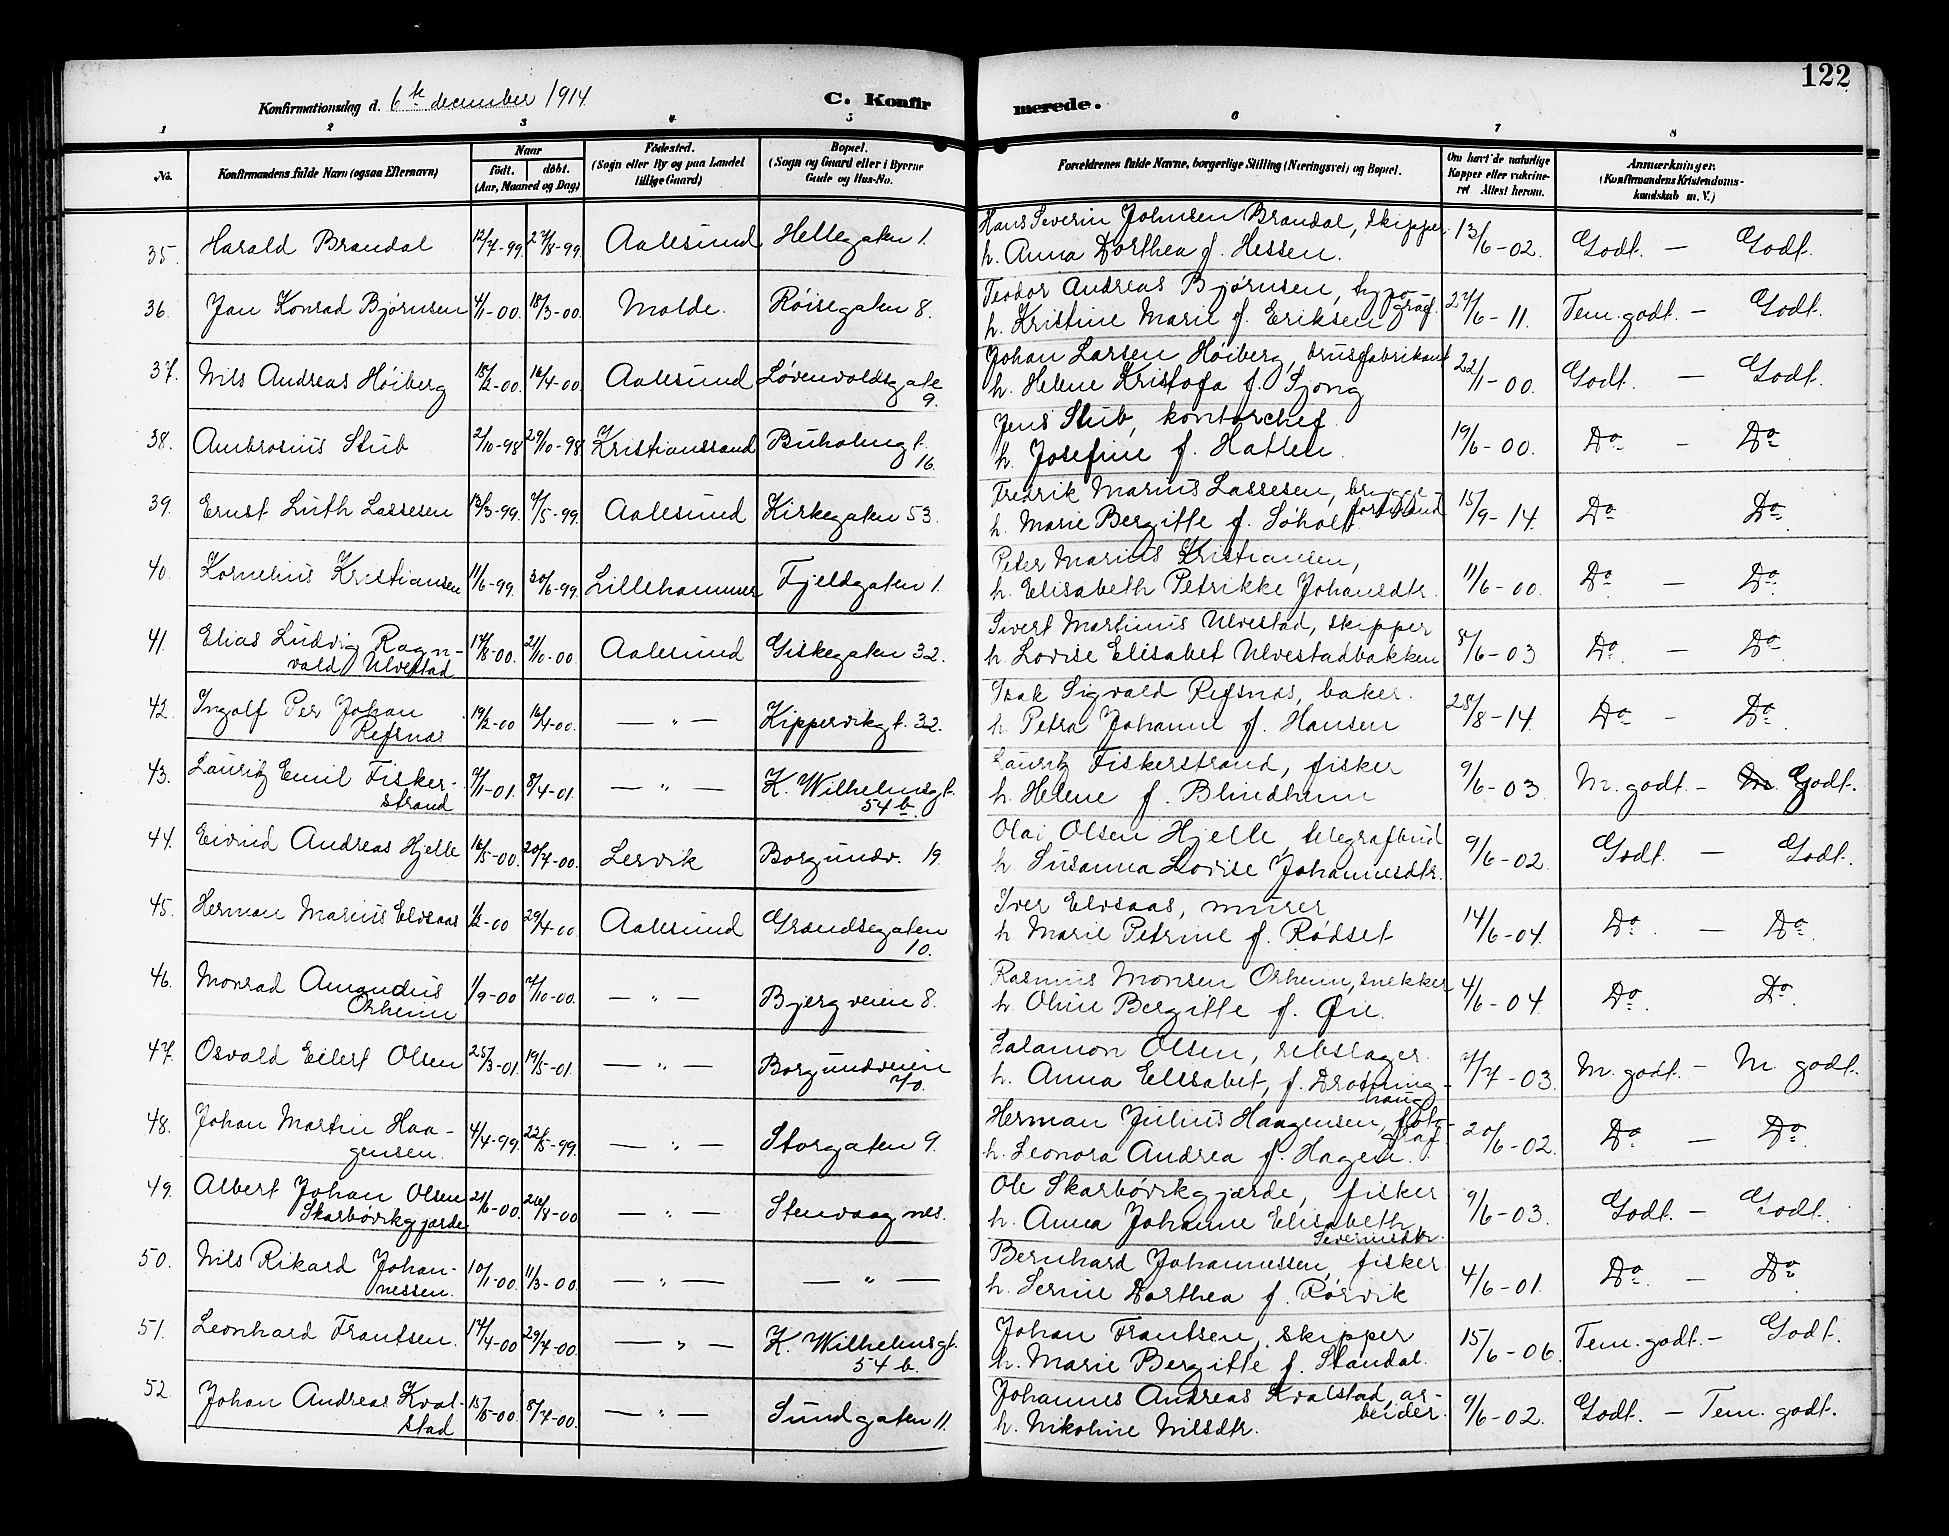 122
Konfirmationsdag d. 6te december 1914
C. Konfirmerede.
1 2 3 4 5 6 7 8
No.
Konfirmandens fulde Navn (ogsaa Efternavn)
Naar
født. døbt.
(Aar, Maaned og Dag)
Fødested.
(Sogn eller By og paa Landet
tillige Gaard)
Bopæl.
(Sogn og Gaard eller i Byerne
Gade og Hus-No.
Forældrenes fulde Navne, borgerlige Stilling (Næringsvei) og Bopæl.
Om havt de naturlige
Kopper eller vakcineret
Attest herom.
Anmærkninger.
(Konfirmandens Kristendomskundskab
m. V.)
35. Harald Brandal 12/7-99 27/8-99 Aalesund Hellegaten 1.
Hans Severin Johnsen Brandal, skipper
h. Anna Dorthea f. Hessen. 13/6-02. Godt. — Godt.
36. Jan Konrad Bjørnsen 4/1-00. 18/3-00. Molde. Røisegaten 8.
Teodor Andreas Bjørnsen, typograf.
h. Kristine Marie f. Eriksen 27/6-11. Tem. godt. — Godt.
37. Nils Andreas Høiberg 18/2-00. 16/4-00 Aalesund Løvenvoldsgate 9.
Johan Larsen Høiberg, brusfabrikant
h. Helene Kristofa f. Gjong 22/1-00. Godt. — Godt.
38. Ambrosius Stub 2/10-98 29/10-98 Kristianssand Buholmgt. 16.
Jens Stub, kontorchef
h. Josefine f. Hatlen. 19/6-00. Do — Do
39. Ernst Luth Lassesen 13/3-99. 7/5-99. Aalesund Kirkegaten 53.
Fredrik Marius Lassesen, bryggeformand
h. Marie Bergitte f. Søholt 15/9-14. Do Do
40. Kornelius Kristiansen 11/6-99. 30/6-99 Lillehammer Fjeldgaten 1.
Peter Marius Kristiansen,
h. Elisabeth Petrikke Johansdtr. 11/6-00. Do — Do
41. Elias Ludvig Ragnvald Ulvestad 17/8-00. 21/10-00. Aalesund Giskegaten 32.
Sivert Martinus Ulvestad, skipper
h. Lovise Elisabet Ulvestadbakken 8/6-03 Do. — Do
42. Ingolf Per Johan Refsnæs 19/2-00 16/4-00. — " — Kippervikgt. 32.
Isak Sigvald Refsnæs, baker.
h. Petra Johanne f. Hansen 28/8-14. Do — Do
43. Lauritz Emil Fiskerstrand 9/1-01. 8/4-01. — " — K. Wilhelmsgt. 54 b.
Lauritz Fiskerstrand, fisker
h. Helene f. Blindheim 9/6-03. M. godt. — Godt.
44. Eivind Andreas Hjelle 16/5-00. 20/7-00. Lervik Borgundv. 19.
Olai Olsen Hjelle, telegrafbud
h. Susanna Lovise Johannesdtr. 9/6-02. Godt. — Godt.
45. Herman Marius Elvsaas 1/2-00 29/4-00. Aalesund Grændsegaten 10.
Iver Elvsaas, murer
h Marie Petrine f. Rødset 14/6-04. Do. — Do.
46. Monrad Amandus Osheim 1/9-00 7/10-00. — " — Bjergveien 8.
Rasmus Monsen Osheim, snekker
h. Oline Bergitte f. Øie. 4/6-04 Do. Do.
47. Osvald Eilert Olsen 25/3-01. 19/5-01. — " — Borgundveien 70.
Salamon Olsen, rebslager.
h. Anna Elisabet, f. Drotninghaug 7/7-03. M. godt. — M godt.
48. Johan Martin Haagensen. 4/4-99. 22/5-99. — " — Storgaten 9.
Herman Julius Haagensen, fotograf.
h. Leonora Andrea f. Hagen. 20/6-02. Do — Do.
49. Albert Johan Olsen Skarbøvikgjærde 21/6-00. 26/8-00 — " — Stenvaagnes.
Ole Skarbøvikgjærde, fisker
h. Anna Johanne Elisabeth Severinsdtr. 9/6-03. Godt. — Godt.
50. Nils Rikard Johannessen. 10/1-00. 11/3-00. — " — — " —
Bernhard Johannessen, fisker
h. Serine Dorthea f. Rørvik 4/6-01. Do. — Do.
51. Leonhard Frantsen. 17/4-00 29/7-00. — " — K. Wilhelmsgt. 54 b.
Johan Frantsen, skipper
h. Marie Bergitte f. Standal. 15/6-06. Tem. godt. — Godt.
52 Johan Andreas Kvalstad 15/5-00. 8/7-00. — " — Sundgaten 11.
Johannes Andreas Kvalstad, arbeider.
h. Nikoline Nilsdtr. 9/6-02. Godt. — Tem. godt.